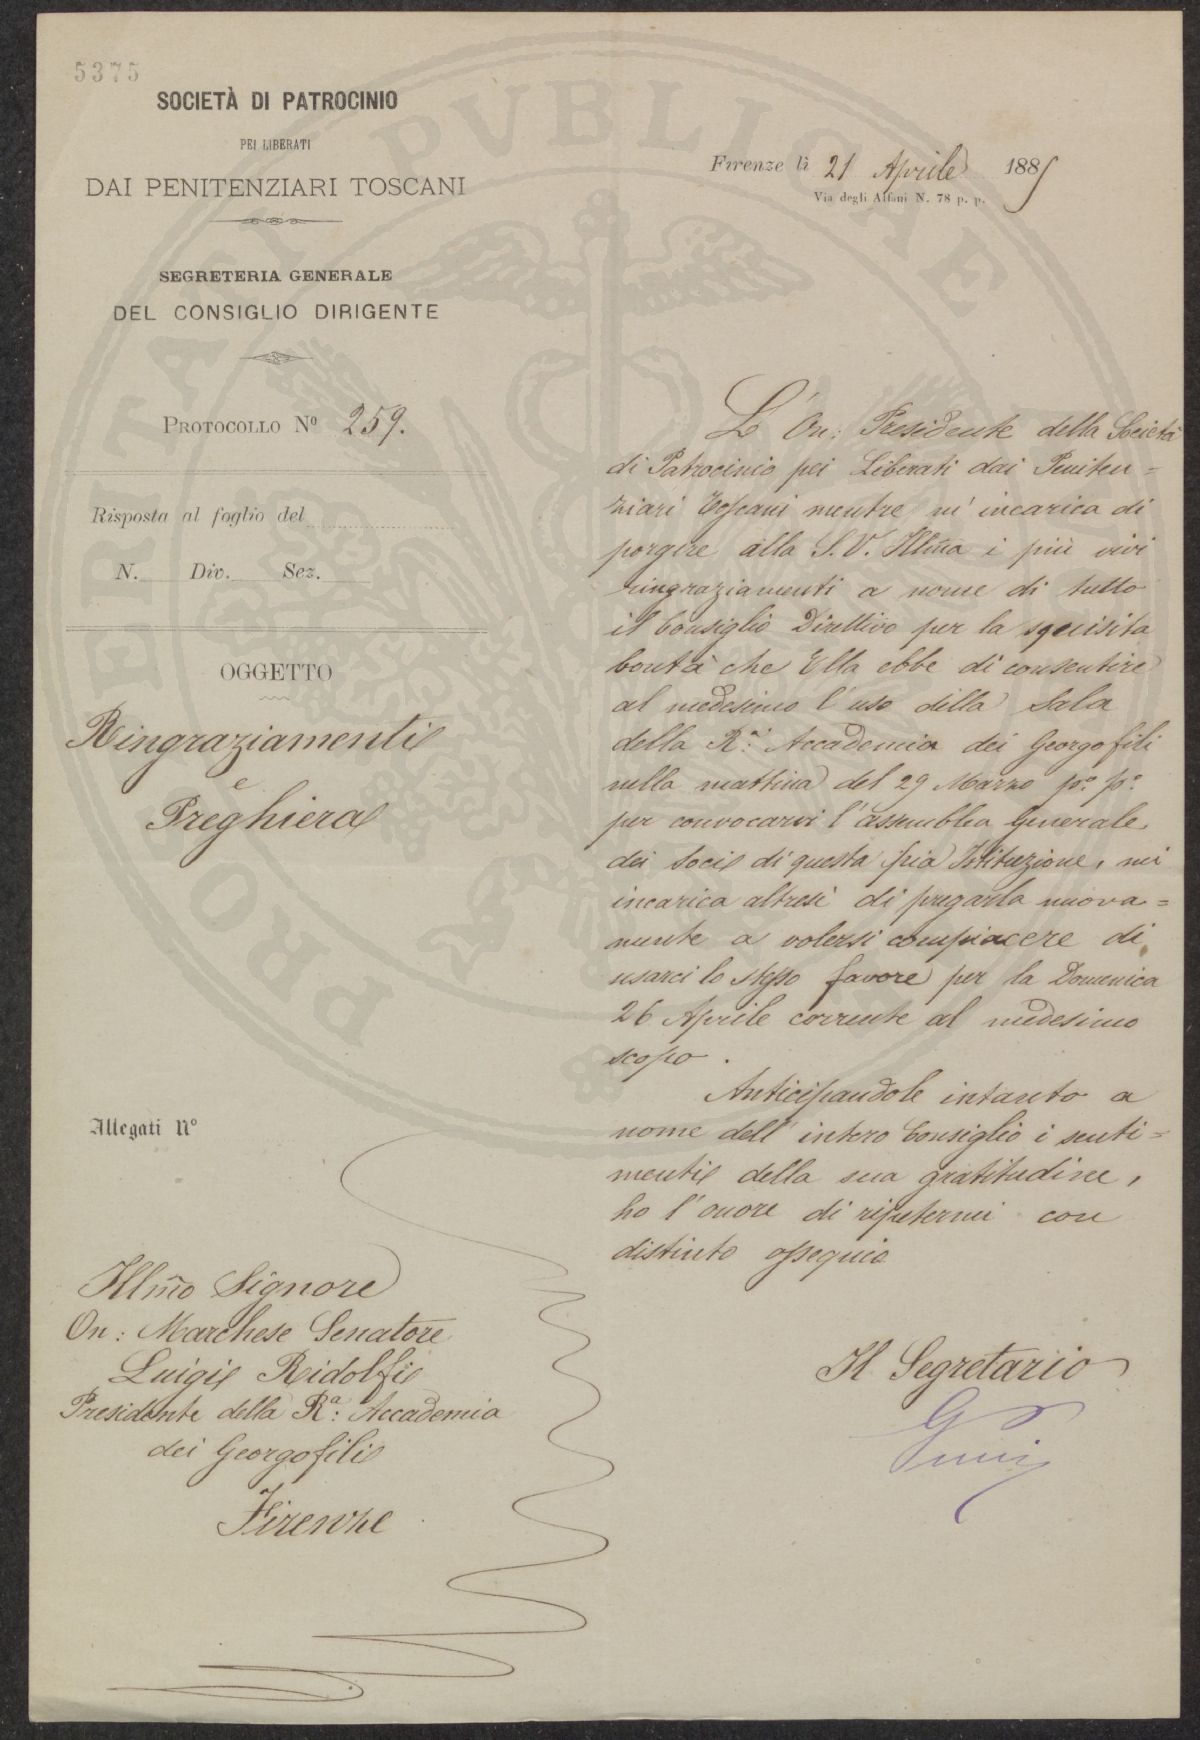 5375
SOCIETÀ DI PATROCINIO
PEI LIBERATI
DAI PENITENZIARI TOSCANI
SEGRETERIA GENERALE
DEL CONSIGLIO DIRIGENTE
PROTOCOLLO Nº 259.
Risposta al foglio del
N. Div. Sez.
OGGETTO
Ringraziamenti
e
Preghiera
Allegati Nº
Illm̃o Signore
On: Marchese Senatore
Luigi Ridolfi
Presidente della Rª: Accademia
dei Georgofili
Firenze
Firenze lì 21 Aprile 1885
Via degli Alfani N. 78 p. p.
L'On: Presidente della Società
di Patrocinio pei Liberati dai Peniten=
ziari Toscani mentre m'incarica di
porgere alla S. V. Illm̃a i più vivi
ringraziamenti a nome di tutto
il Consiglio Direttivo per la squisita
bontà che Ella ebbe di consentire
al medesimo l'uso della Sala
della Rª: Accademia dei Georgofili
nella mattina del 29 Marzo pº: pº:
per convocarvi l'assemblea Generale
dei soci di questa pia Istituzione, mi
incarica altresì di pregarla nuova=
mente a volersi compiacere di
usarci lo stesso favore per la Domenica
26 Aprile corrente al medesimo
scopo.
Anticipandole intanto a
nome dell'intero Consiglio i senti=
menti della sua gratitudine,
ho l'onore di ripetermi con
distinto ossequio
Il Segretario
PROPERITATI PVBLICAE AVGENDAE